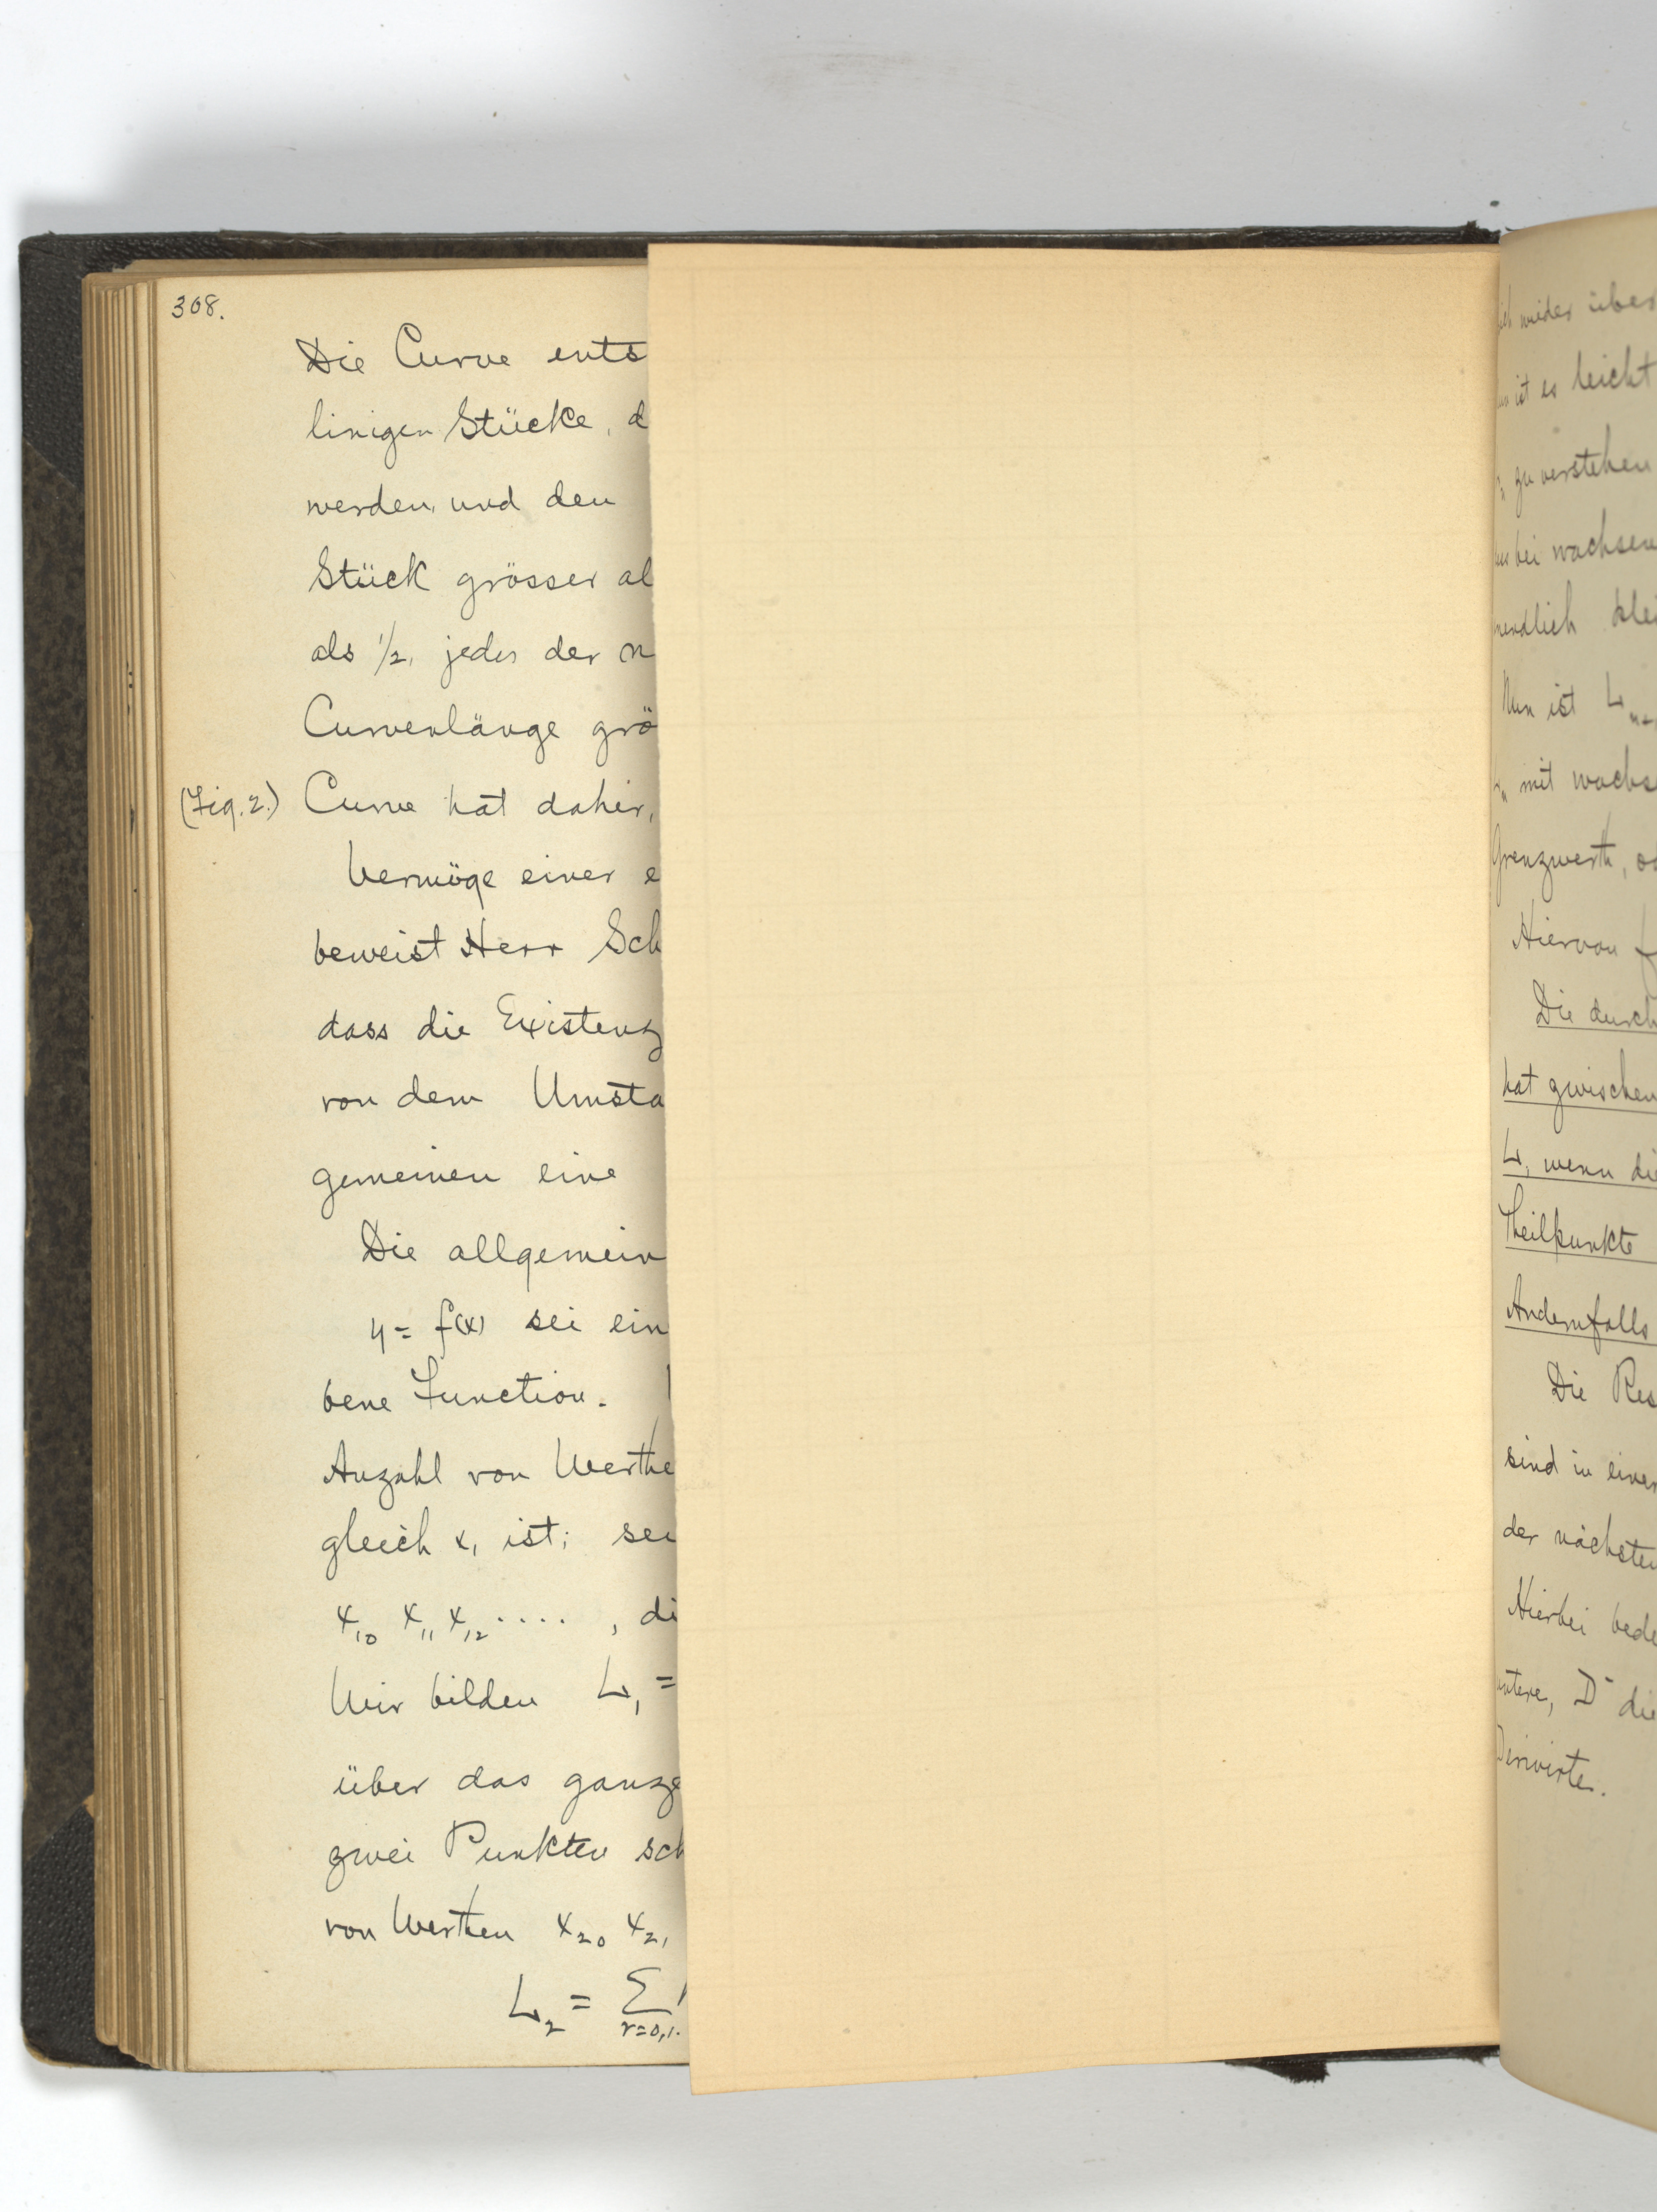 308.
Die Curve ents
linigen Stücke, d
werden, und den
Stück grösser al
als 1/2, jedes der n
Curvenlänge grö
(Fig. 2.) Curve hat daher,
Vermöge einer e
beweist Herr Sch
dass die Existenz
von dem Umsta
gemeinen eine
Die allgemein
y = f(x) sei ein
bene Function.
Anzahl von Werthe
gleich x₁ ist; sei
x₁₀ x₁₁ x₁₂ .... , di
Wir bilden L₁ =
über das ganze
zwei Punkten sch
von Werthen x₂₀ x₂₁
L₂ = Σ r=0,1.
wieder über
ist es leicht
zu verstehen
bei wachsen
unendlich klei
Nun ist L
mit wachs
Grenzwerth, od
Hiervon f
Die durch
hat zwischen
L, wenn die
Theilpunkte
Andernfalls
Die Res
sind in einer
der nächsten
Hierbei bede
untere, D⁻ die
Derivirte.